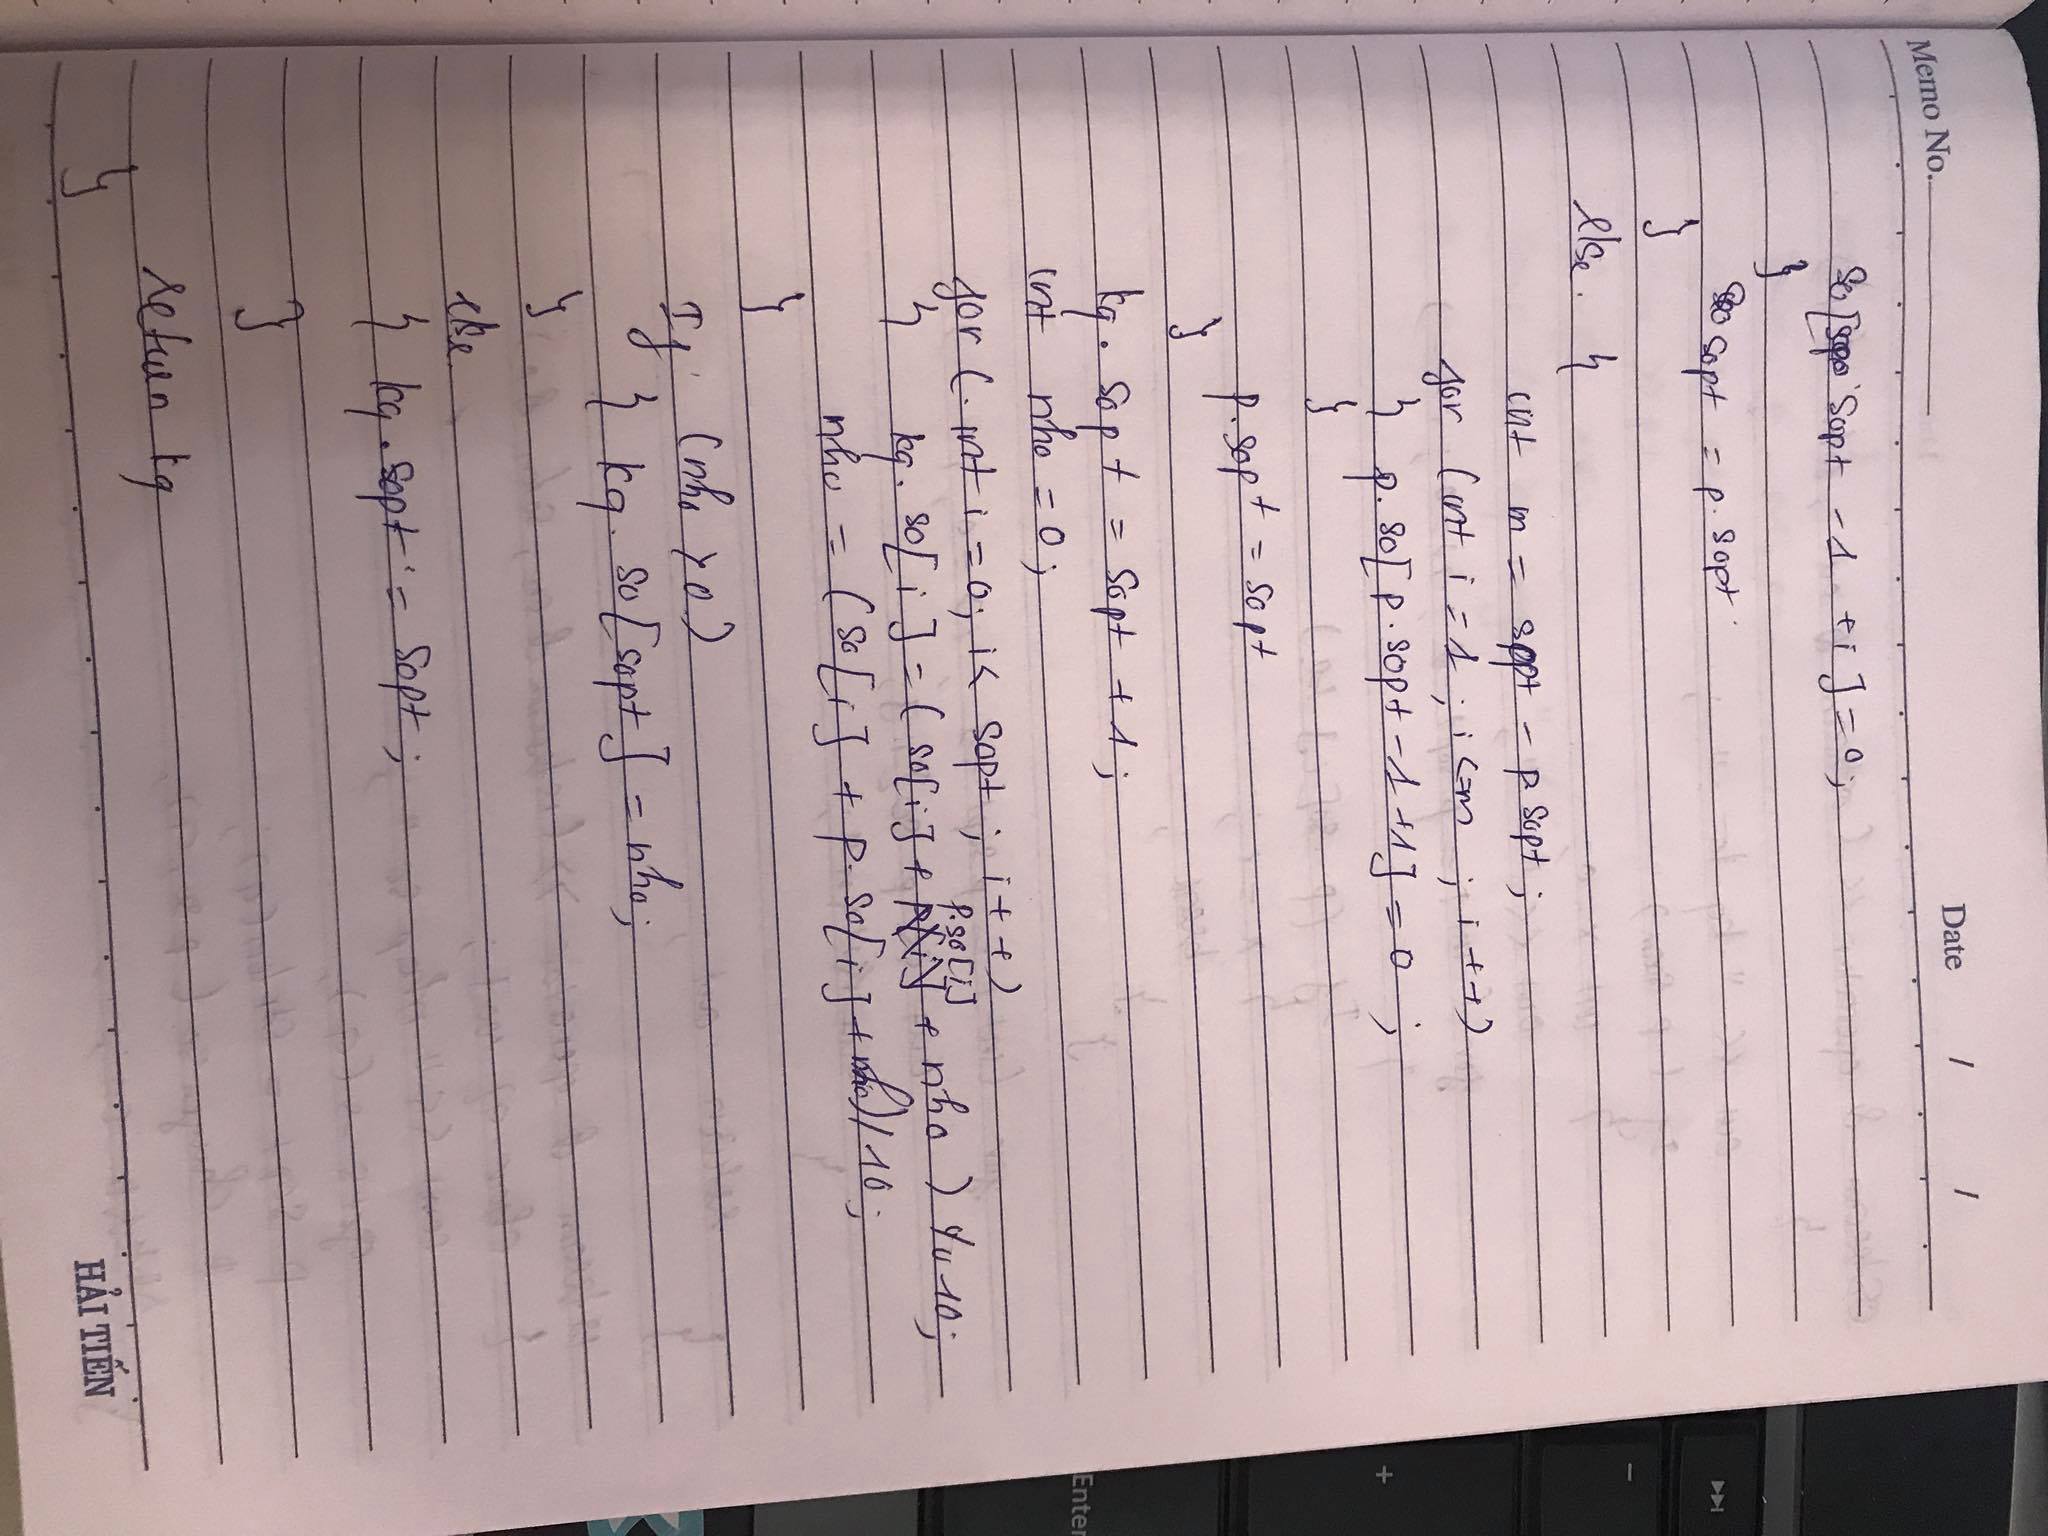 Memo No. Date / /
so[sopt - 1 + i] = 0;
}
sopt = p.sopt.
}
else. {
int m = sopt - p.sopt;
for (int i = 1; i <= m; i++)
{ p.so[p.sopt - 1 + 1] = 0;
}
p.sopt = sopt
}
kq.sopt = sopt + 1;
int nho = 0;
for (int i = 0; i < sopt; i++)
{ kq.so[i] = (so[i] + p.so[i] + nho) % 10;
nho = (so[i] + p.so[i] + nho) / 10;
}
If (nho > 0)
{ kq.so[sopt] = nho;
}
else
{ kq.sopt = sopt;
}
return kq
}
HẢI TIẾN
Enter
+
-